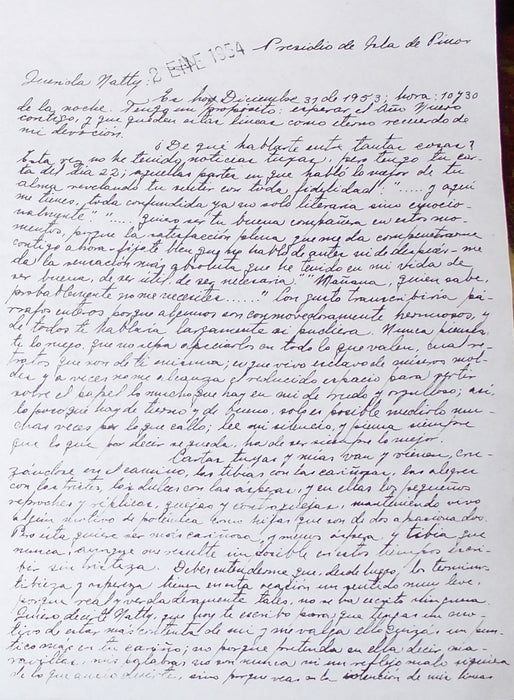 2 ENE 1954
Presidio de Isla de Pinos
Querida Natty:
Es hoy Diciembre 31 de 1953; hora: 10 y 30
de la noche. Tengo un propósito: esperar el Año Nuevo
contigo, y que queden estas líneas como eterno recuerdo de
mi devoción.
¿De qué hablarte entre tantas cosas?
Esta vez no he tenido noticias tuyas, pero tengo tu car-
ta del día 23; aquella parte en que habló lo mejor de tu
alma revelando tu sentir con toda fidelidad: "..... y aquí
me tienes, toda confundida ya no solo literaria sino emocio-
nalmente" "..... quiero ser tu buena compañera en estos mo-
mentos, porque la satisfacción plena que me da compenetrarme
contigo ahora - fíjate bien que no hablo de antes ni de después - me
da la sensación más absoluta que he tenido en mi vida de
ser buena, de ser útil, de ser necesaria." "Mañana, quien sabe,
probablemente no me necesites......" Con gusto transcribiría pá-
rrafos enteros porque algunos son conmovedoramente hermosos, y
de todos te hablaría largamente si pudiera. Nunca pienses,
te lo ruego, que no sepa apreciarlos en todo lo que valen, cual re-
tratos que son de ti misma; es que vivo esclavo de
y a veces no me alcanza el reducido espacio para vertir
sobre el papel lo mucho que hay en mí de rudo y orgulloso; así,
lo poco que hay de tierno y de bueno, solo es posible medirlo mu-
chas veces por lo que callo; lee mi silencio, y piensa siempre
que lo que por decir se queda, ha de ser siempre lo mejor.
Cartas tuyas y mías van y vienen, cru-
zándose en el camino, las tibias con las cariñosas, las alegres
con las tristes, las dulces con las ásperas, y en ellas los pequeños
reproches y réplicas, quejas y contraquejas, manteniendo vivo
algún motivo de polémica como hijas que son de dos apasionados.
Pero esta quiere ser más cariñosa, y menos áspera y tibia que
nunca, aunque me resulte imposible en estos tiempos escri-
bir sin tristeza. Debes entenderme que, desde luego, los términos
tibieza y aspereza tienen en esta ocasión un sentido muy leve,
porque real y verdaderamente tales, no se ha escrito ninguna.
Quiero decirte Natty, que hoy te escribo para que tengas un mo-
tivo de estar más contenta de mí y me valga ello quizás, un pun-
tico más en tu cariño; no porque pretenda en ella decir, ma-
ravillas, mis palabras no son nunca ni un reflejo malo siquiera
de lo que quiero decirte, sino porque veas en la intención de mis líneas